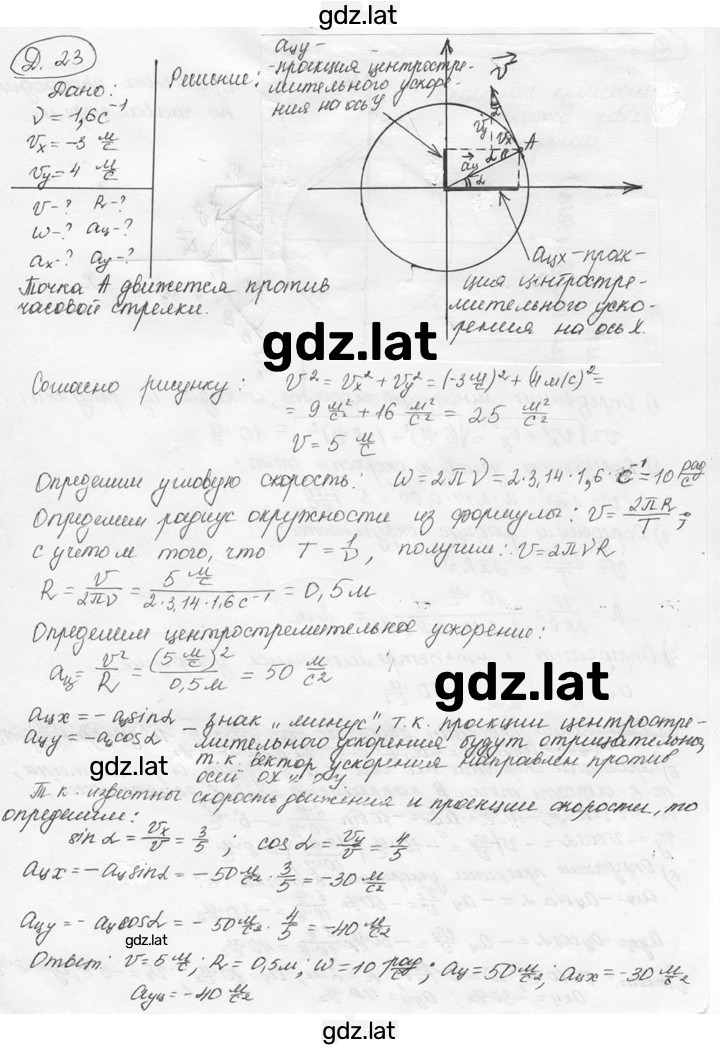 gdz.lat
Д. 23
Дано:
ν = 1,6 с⁻¹
Vx = -3 м/с
Vy = 4 м/с
V - ? R - ?
ω - ? aц - ?
ax - ? ay - ?
Решение:
aцy -
-проекция центростре-
мительного ускоре-
ния на ось У
V
α
Vy
Vx
A
α
aц
α
aцx - проек-
ция центростре-
мительного уско-
рения на ось X.
Точка A движется против
часовой стрелки.
gdz.lat
Согласно рисунку: V² = Vx² + Vy² = (-3 м/с)² + (4 м/с)² =
= 9 м²/с² + 16 м²/с² = 25 м²/с²
V = 5 м/с
Определим угловую скорость: ω = 2πν = 2·3,14·1,6 · с⁻¹ = 10 рад/с
Определим радиус окружности из формулы: V = 2πR/T;
с учетом того, что T = 1/ν, получим: V = 2πνR
R = V/2πν = 5 м/с / 2·3,14·1,6 с⁻¹ = 0,5 м
Определим центростремительное ускорение:
aц = V²/R = (5 м/с)²/0,5 м = 50 м/с²
gdz.lat
aцx = -aц sinα
aцy = -aц cosα
- знак „минус", т.к. проекции центростре-
мительного ускорения будут отрицательны,
т.к. вектор ускорения направлен против
осей ox и oy
gdz.lat
Т.к известны скорость движения и проекции скорости, то
определим:
sinα = Vx/V = 3/5 ; cosα = Vy/V = 4/5
aцx = -aц sinα = -50 м/с² · 3/5 = -30 м/с²
aцy = -aц cosα = -50 м/с² · 4/5 = -40 м/с²
gdz.lat
Ответ: V = 5 м/с; R = 0,5 м; ω = 10 рад/с; aц = 50 м/с²; aцx = -30 м/с²
aуц = -40 м/с²
gdz.lat